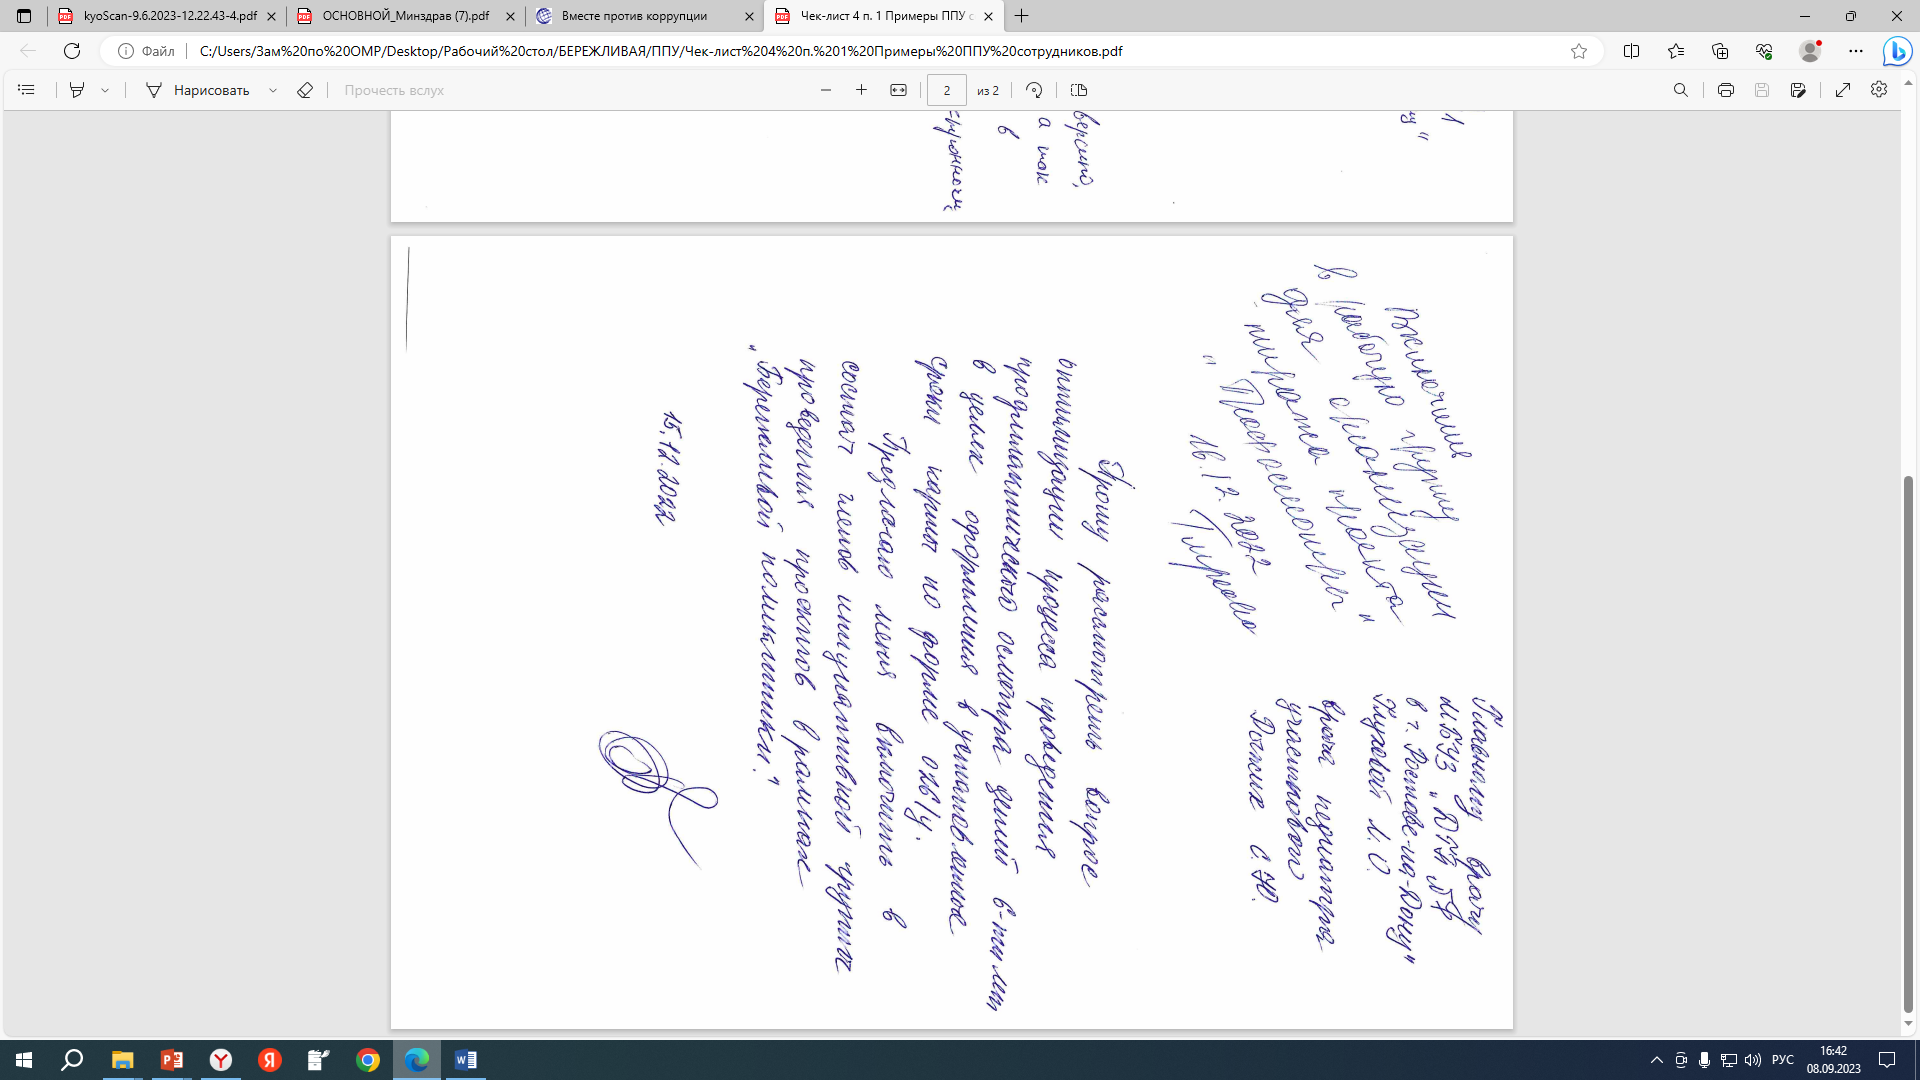 kyoScan-9.6.2023-12.22.43-4.pdf
ОСНОВНОЙ_Минздрав (7).pdf
Вместе против коррупции
Чек-лист 4 п. 1 Примеры ППУ с
Файл
C:/Users/Зам%20по%20ОМР/Desktop/Рабочий%20стол/БЕРЕЖЛИВАЯ/ППУ/Чек-лист%204%20п.%201%20Примеры%20ППУ%20сотрудников.pdf
Нарисовать
Прочесть вслух
2
из 2
Главному врачу
МБУЗ "ДГП №
в г. Ростове-на-Дону"
Глуховой Л.О.
врача педиатра
участкового
С.Ю.
Включение
в рабочую группу
для организации
пилотного проекта
"Профосмотры"
16.12.2022
Прошу рассмотреть вопрос
оптимизации процесса проведения
профилактического осмотра детей 6-ти лет
в целях оформления в установленные
сроки карты по форме 026/у.
Предлагаю меня включить в
состав членов инициативной группы
проведения проектов в рамках
"Бережливой поликлиники."
15.12.2022
РУС
16:42
08.09.2023